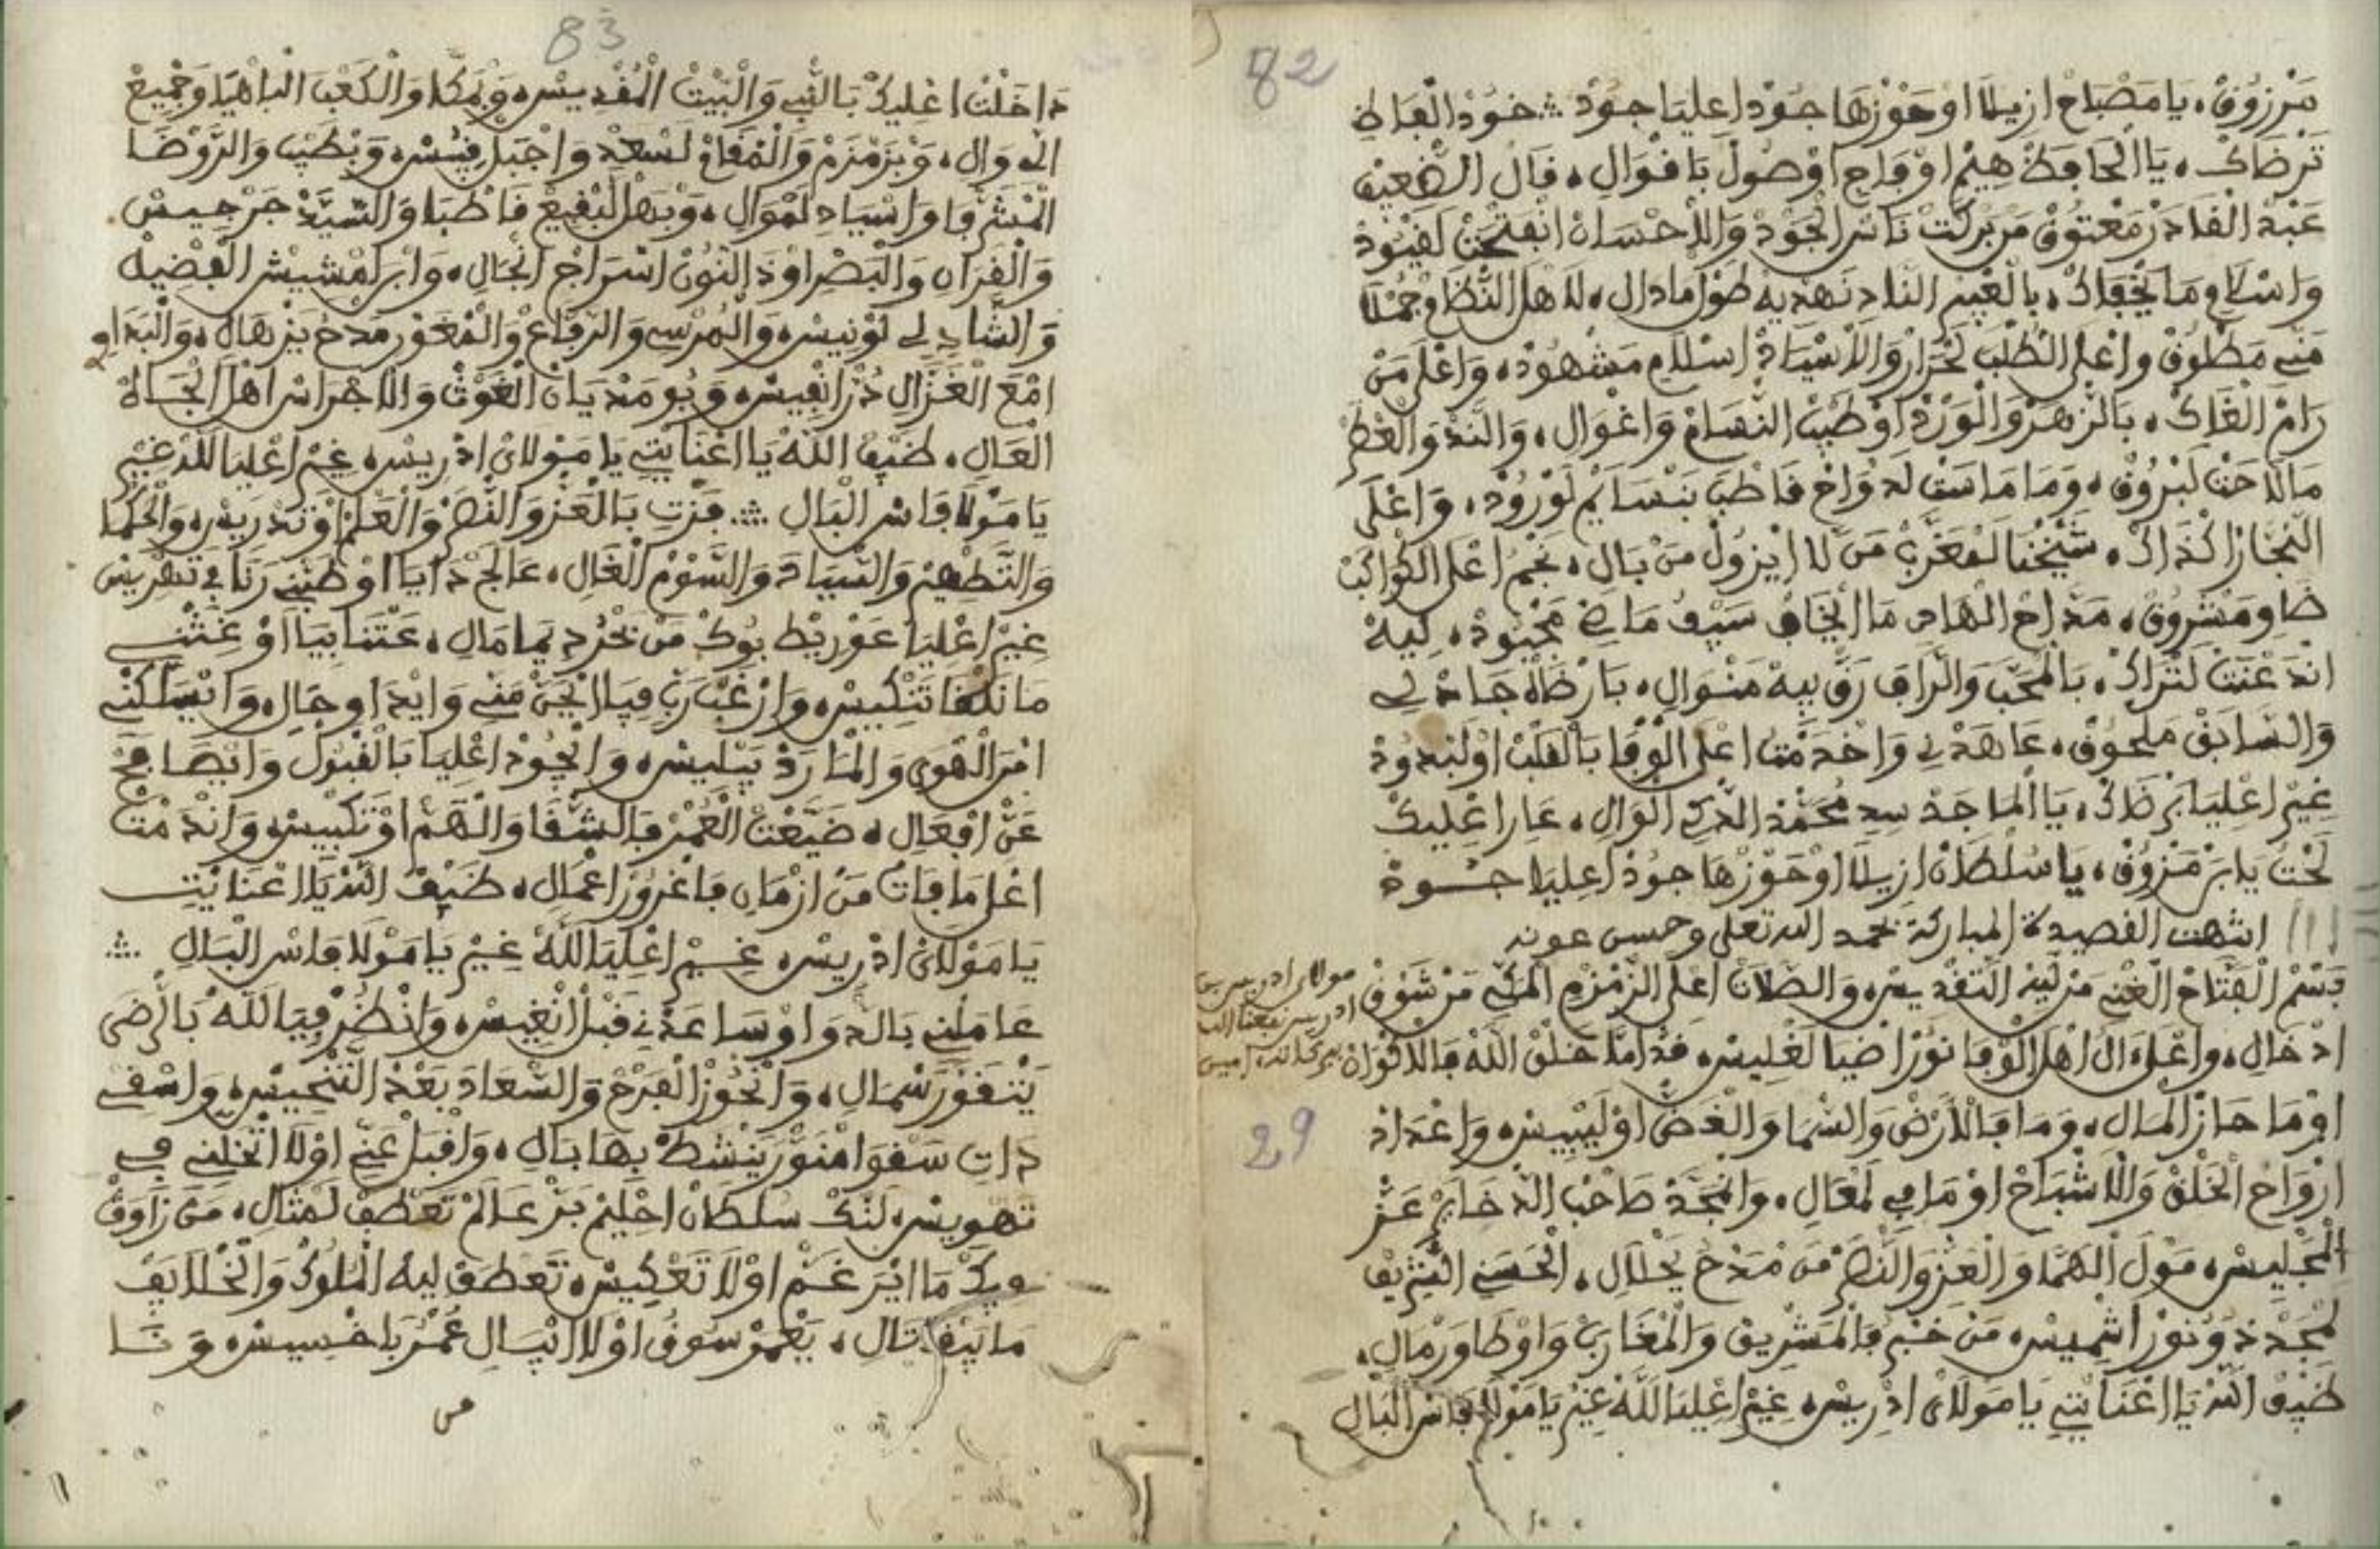 82
مرزوق، يا مصباح ازيلا او حوزها جود اعليا جود ؞ خود الفاظ
ترضاك، يا الحافظ هيم اوفاج اوصول بافوال، فال الضعيف
عبد القادر معتوق من بركت ناس الجود والاحسان انفتحت لفيود
واسلامي ما يخفاك، بالعنبر الناد نهديه طول مادال، لاهل النظام جملا
مني مطلوق واعلى الطلب لحرار والاسياد اسلام مشهود، واعلى من
رام الغاك، بالزهر والورد او طيب النسام واغوال، والند والعطر
مالاحت لبروق، وما ماست لدواح فاطب بنسايم لورود، واعلى
شيخنا لمغربي من لا ايزول من بال، نجم اعلى الكواكب
ضاو مشروق، مداح الهادي ما ايخاف سيف ماضي مجبود، ليه
اندعنت لتراك، بالمحب والراف رق بيه منوال، بارضاه جادلي
والسابق ملحوق، عاهدني واخدمت اعلى الوفا بالقلب اولبدود
غير اعليا برضاك، يا الماجد سيد محمد الدكي الوال، عار اعليك
لحت يا بن مرزوق، يا سلطان ازيلا او حوزها جود اعليا جـــود
انتهت القصيدة المباركة بحمد الله تعلى وحسن عونه
بسم الفتاح الغني من ليه التقديس، والصلات اعلى الزمزم المكي من شوق
مولاي ادريس بن
ادريس نفعنا الله
ببركاته امين
ادخال، واعلى ال اهل الوفا نور اضيا لغليس، قد اما خلق الله فالاكوان
29
اوما حاز المال، وما فالارض والسما والغض اوليبيس، واعداد
ارواح الخلق والاشباح اوما في لمعال، وانمجد صاحب الدخاير عز
الجليس، مول الهما والعز والنصر من مدح يحلال، الحسني الشريف
لمجد دونور اشميس، من خبر فالمشريق والمغارب واوطا ورمال،
ضيف الله يا اعنايتي يا مولاي ادريس، غير اعليا لله غير يا مولا فاس البال
83
داخلت اعليك بالنبي والبيت المقديس، وبمكا والكعب الباهيا وجميع
اله وال، وبزمزم والمقام لسعد واجبل قبيس، وبطيب والروضا
المشرفا واسياد لموال، وبهل لبقيع فاطبا والسيد جرجيس
والفران والبصرا ود النون اسراج انجال، وابن امشيش الفضيه
والشادلي تونيس، والمرسي والرفاع والمغور مدح يزهال، والبداوي
امع الغزال در انفيس، وبومديان الغوث والاجراس اهل الجاه
العال، ضيف الله يا اعنايتي يا مولاي ادريس، غير اعليا لله غير
يا مولا فاس البال ؞ فزت بالعز والنصر والعلم او تدريس، والحكما
والتطهير والسياد والسوم الغال، عالج دايا او طبني رنا في تهريس
غير اعليا عوريط بوك من نخرد يما مال، عتنا بيا او غتني
ما نلقا تنكيس، وارغب رب فيا الحي مني وايداو حال، وايسلكني
امر الهوى والمارد بيليس، وانجود اعليا بالقبول وايصافح
عن افعال، ضيعت العمر فالشقا والهم او تكبيس، واندمت
اعلى ما فات من ازمان فاغرور اعمال، ضيف الله يا اعنايتي
يا مولاي ادريس، غير اعليا لله غير يا مولا فاس البال ؞
عاملني بالدوا وساعدني قبل انغيس، وانظر فيا لله بالرضى
يتنفور سمال، وانحوز الفرح والسعاد بعد التنحيس، واسقي
دات سقوا امنور ينشط بها بال، واقبل عني اولا اتخليني في
تهويس، لنك سلطان احليم بن عالم تعطف لمثال، من زاوق
بيك ما ايرغم اولا تعكيس، تعطف ليه الملوك والخلايف
ما يبقا تال، يعمر سوق اولا ايسال عمر باخسيس، ونا
من